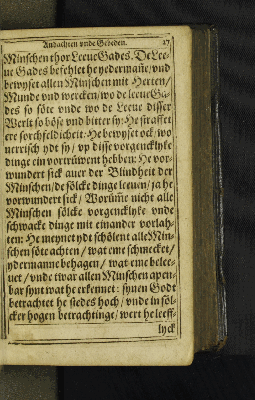 Andachten vnde Gebeden. 27
Minschen thor Leeue Gades. De Lee-
ue Gades befehlet he yedermañe/ vnd
bewyset allen Minschen mit Herten/
Munde vnd wercken/ wo de leeue Ga-
des so söte vnde wo de Leeue disser
Werlt so böse vnd bitter sy: He straffet
ere sorchfeldicheit: He bewyset ock/ wo
nerrisch ydt sy/ vp disse vorgencklyke
dinge ein vortruwent hebben: He vor-
wundert sick auer der Blindheit der
Minschen/ de sölcke dinge leeuen/ ja he
vorwundert sick/ Worüme nicht alle
Minschen sölcke vorgencklyke vnde
schwacke dinge mit einander vorlah-
ten: He meynet ydt schölent alle Min-
schen söte achten/ wat eme schmecket/
ydermanne behagen/ wat eme belee-
uet/ vnde iwar allen Minschen apen-
bar synt wat he erkennet: synen Godt
betrachtet he stedes hoch/ vnde in söl-
cker hogen betrachtinge/ wert he leeff-
lyck